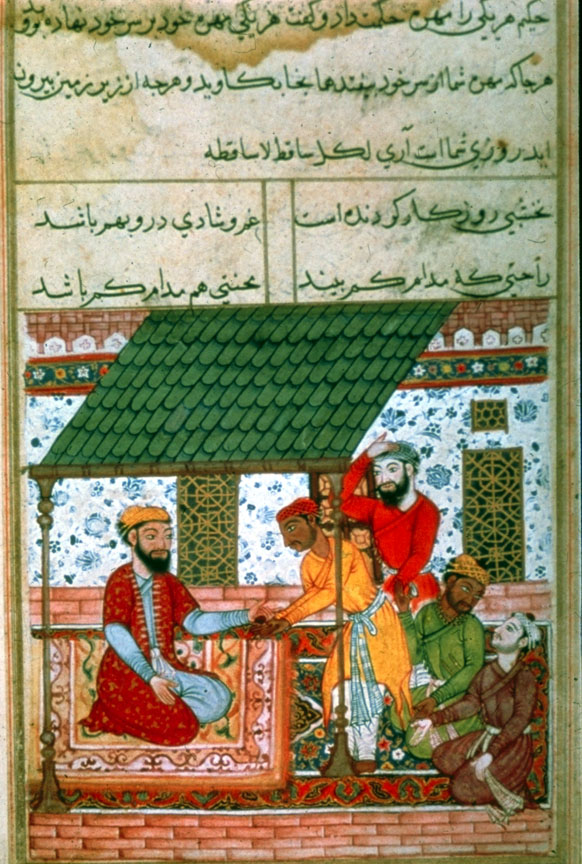 حکیم هر یکی را مهره حکمت داد و گفت هر یکی مهره خود بر سر خود نهاده
هر جا که مهره شما از سر خود بیفتد همانجا بکاوید و هرجه از زیر زمین بیرون
اید روزی شما است آری لکل ساقط لاساقطه
نخشبی روزکار کردنده است غم و شادی درو بهم باشد
راحتی که مدام کم بیند محنتی هم مدام کم باشد